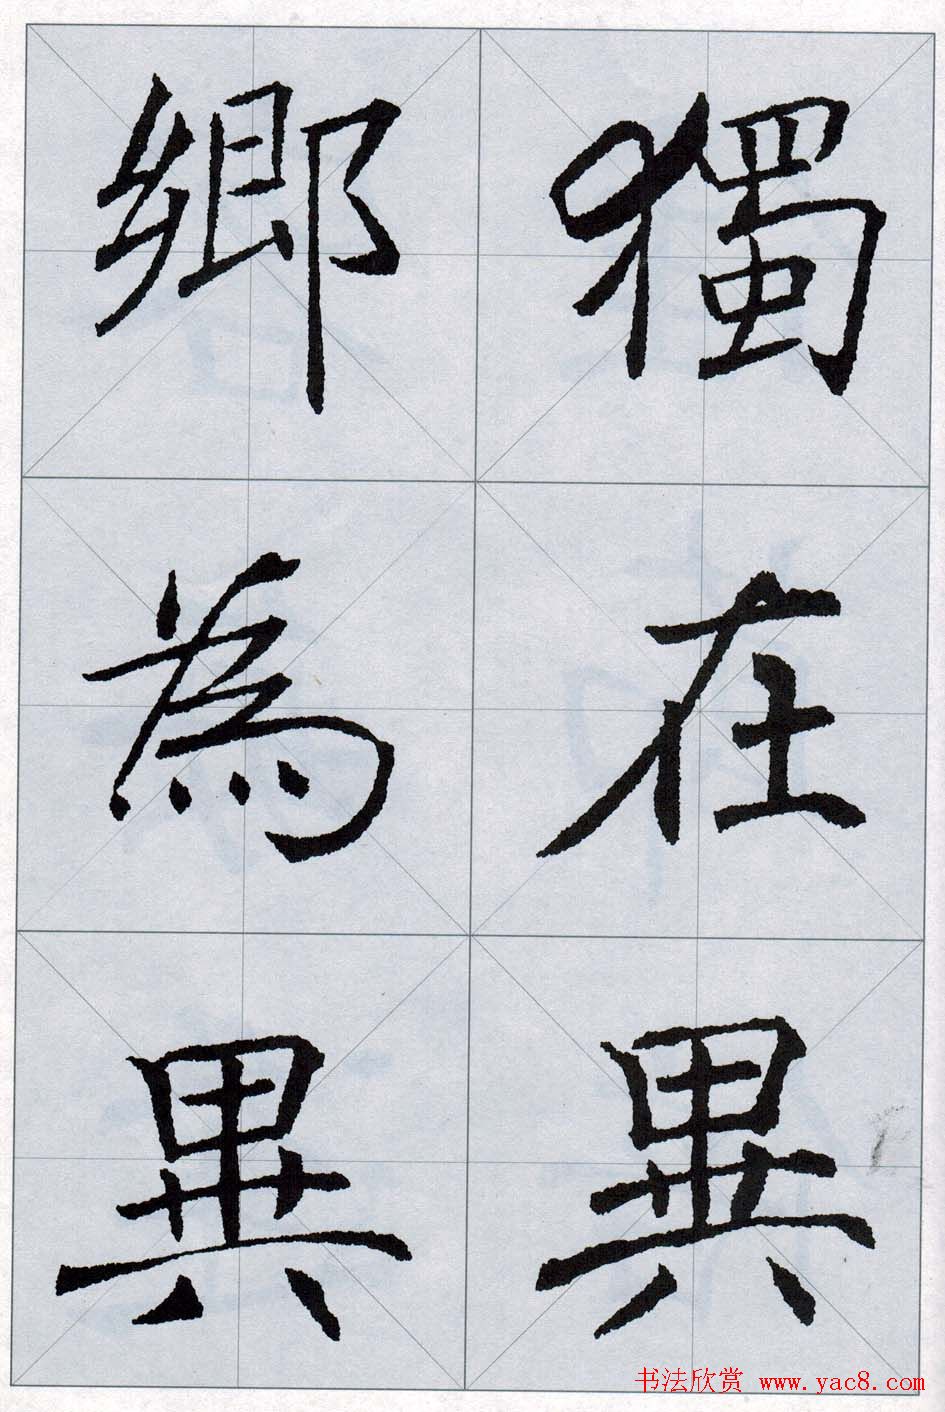 獨在異
鄉為異
书法欣赏 www.yac8.com